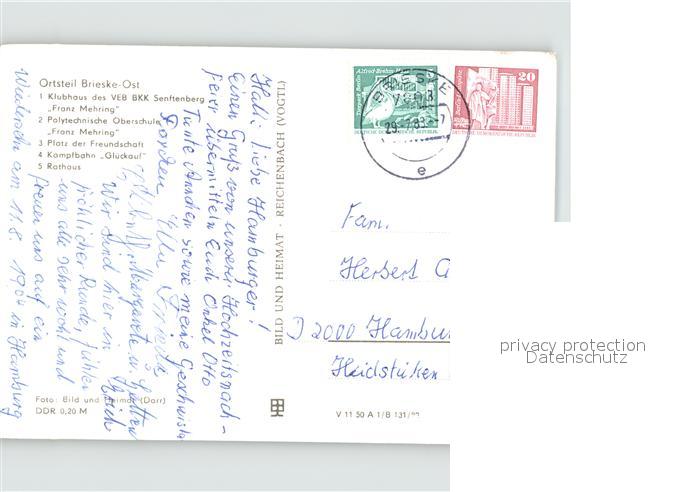 Ortsteil Brieske-Ost
1 Klubhaus des VEB BKK Senftenberg
„Franz Mehring"
2 Polytechnische Oberschule
„Franz Mehring"
3 Platz der Freundschaft
4 Kampfbahn „Glückauf"
5 Rathaus
Foto: Bild und Heimat (Darr)
DDR 0,20 M
BILD UND HEIMAT · REICHENBACH (VOGTL)
V 11 50 A 1/B 131/
Alfred-Brehm
Tierpark Berlin
DEUTSCHE DEMOKRATISCHE REPUBLIK
20
DEUTSCHE DEMOKRATISCHE REPUBLIK
e
Hallo liebe Hamburger!
Einen Gruß von unserer Hochzeitsnach-
feier übermitteln Euch Onkel Otto
Tante Ännchen sowie meine Geschwister
Wir sind hier in
fröhlicher Runde, fühlen
uns alle sehr wohl und
freuen uns auf ein
am 11.8. in Hamburg
Fam.
Herbert
D 2000 Hambu
Heidstücken
privacy protection
Datenschutz